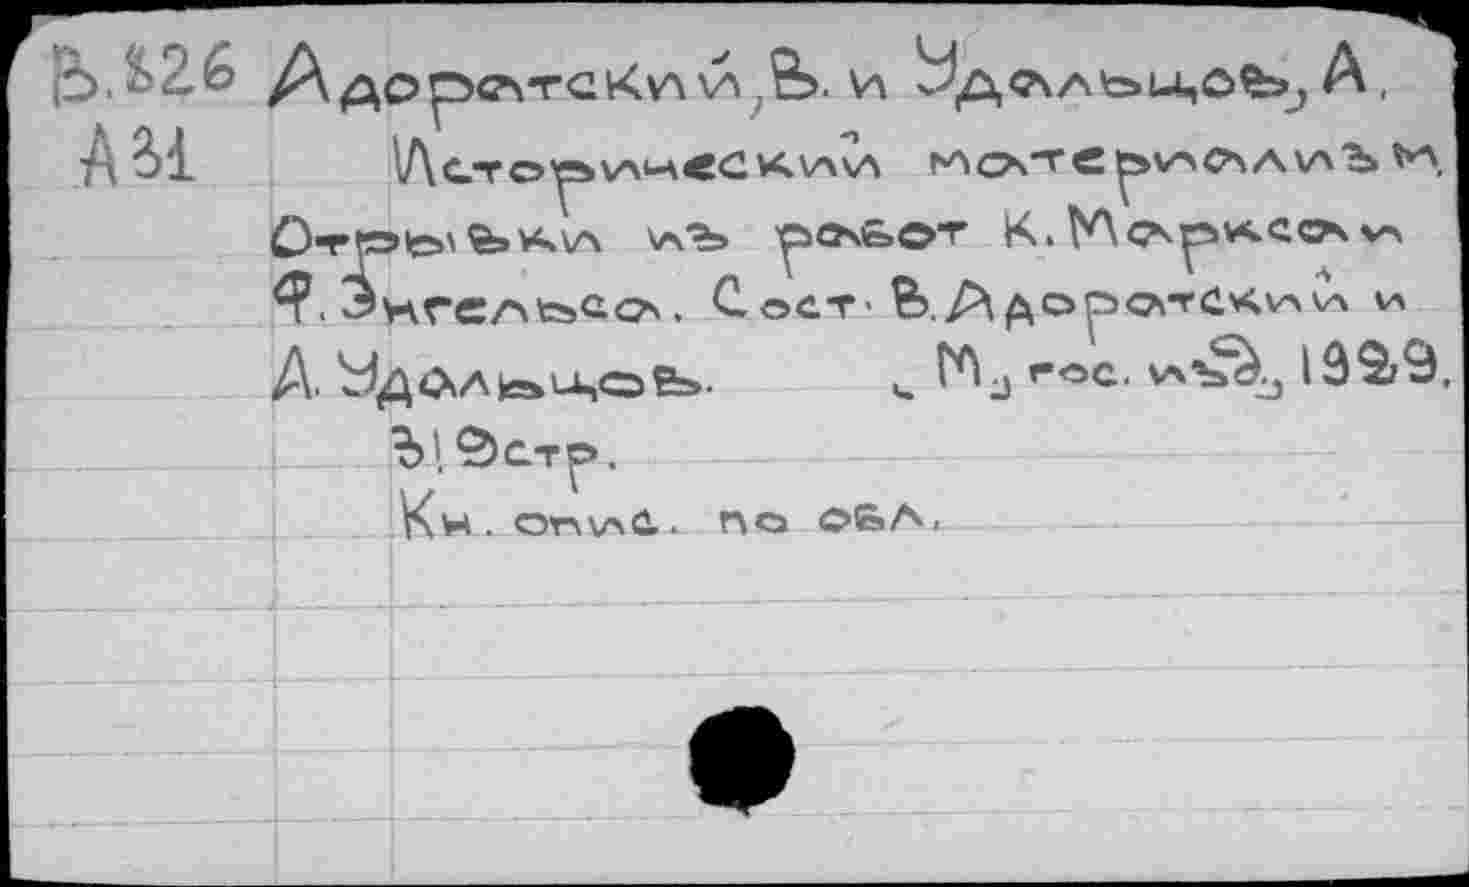 В.826 Адоратский, В. и Удальцов, А.
А31 Исторический материализм.
Отрывки из работ К. Маркса и
Ф. Энгельса. Сост. В. Адоратский и
А. Удальцов. М., гос. изд., 1929.
319 стр.
Кн. опис. по обл.